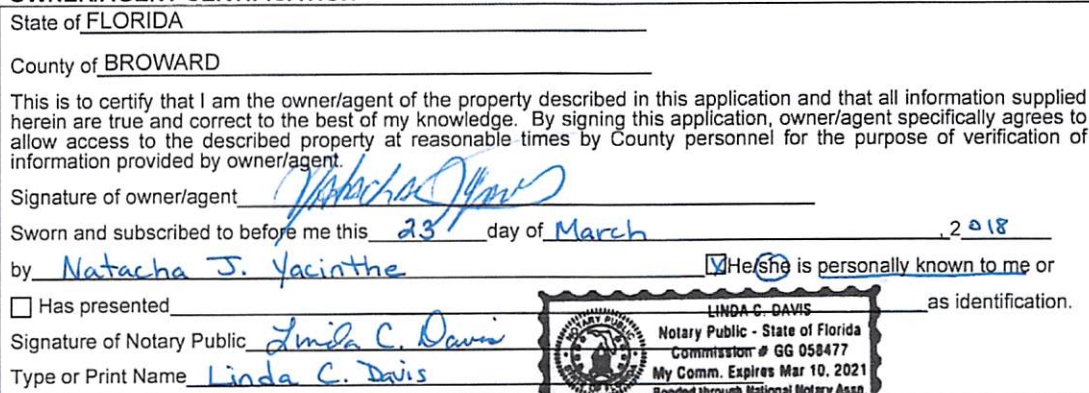 State of FLORIDA
County of BROWARD
This is to certify that I am the owner/agent of the property described in this application and that all information supplied
herein are true and correct to the best of my knowledge. By signing this application, owner/agent specifically agrees to
allow access to the described property at reasonable times by County personnel for the purpose of verification of
information provided by owner/agent.
Signature of owner/agent
Sworn and subscribed to before me this 23 day of March , 2018
by Natacha J. Yacinthe ☒ He/she is personally known to me or
☐ Has presented as identification.
Signature of Notary Public Linda C. Davis
Type or Print Name Linda C. Davis
NOTARY PUBLIC
LINDA C. DAVIS
Notary Public - State of Florida
Commission # GG 058477
My Comm. Expires Mar 10, 2021
Bonded through National Notary Assn.